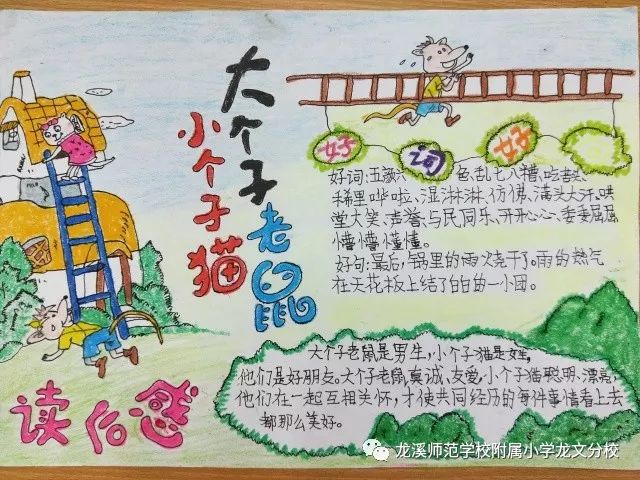 大个子老鼠
小个子猫
好词 好
好词:五颜六色、乱七八糟、吃苦头
稀里哗啦、湿淋淋、仿佛、满头大汗、哄
堂大笑、声誉、与民同乐、开开心心、委委屈屈
懵懵懂懂。
好句:最后,锅里的雨烧干了。雨的热气
在天花板上结了白白的一小团。
大个子老鼠是男生,小个子猫是女生,
他们是好朋友。大个子老鼠真诚、友爱,小个子猫聪明、漂亮,
他们在一起互相关怀,才使共同经历的每件事情看上去
都那么美好。
读后感
龙溪师范学校附属小学龙文分校